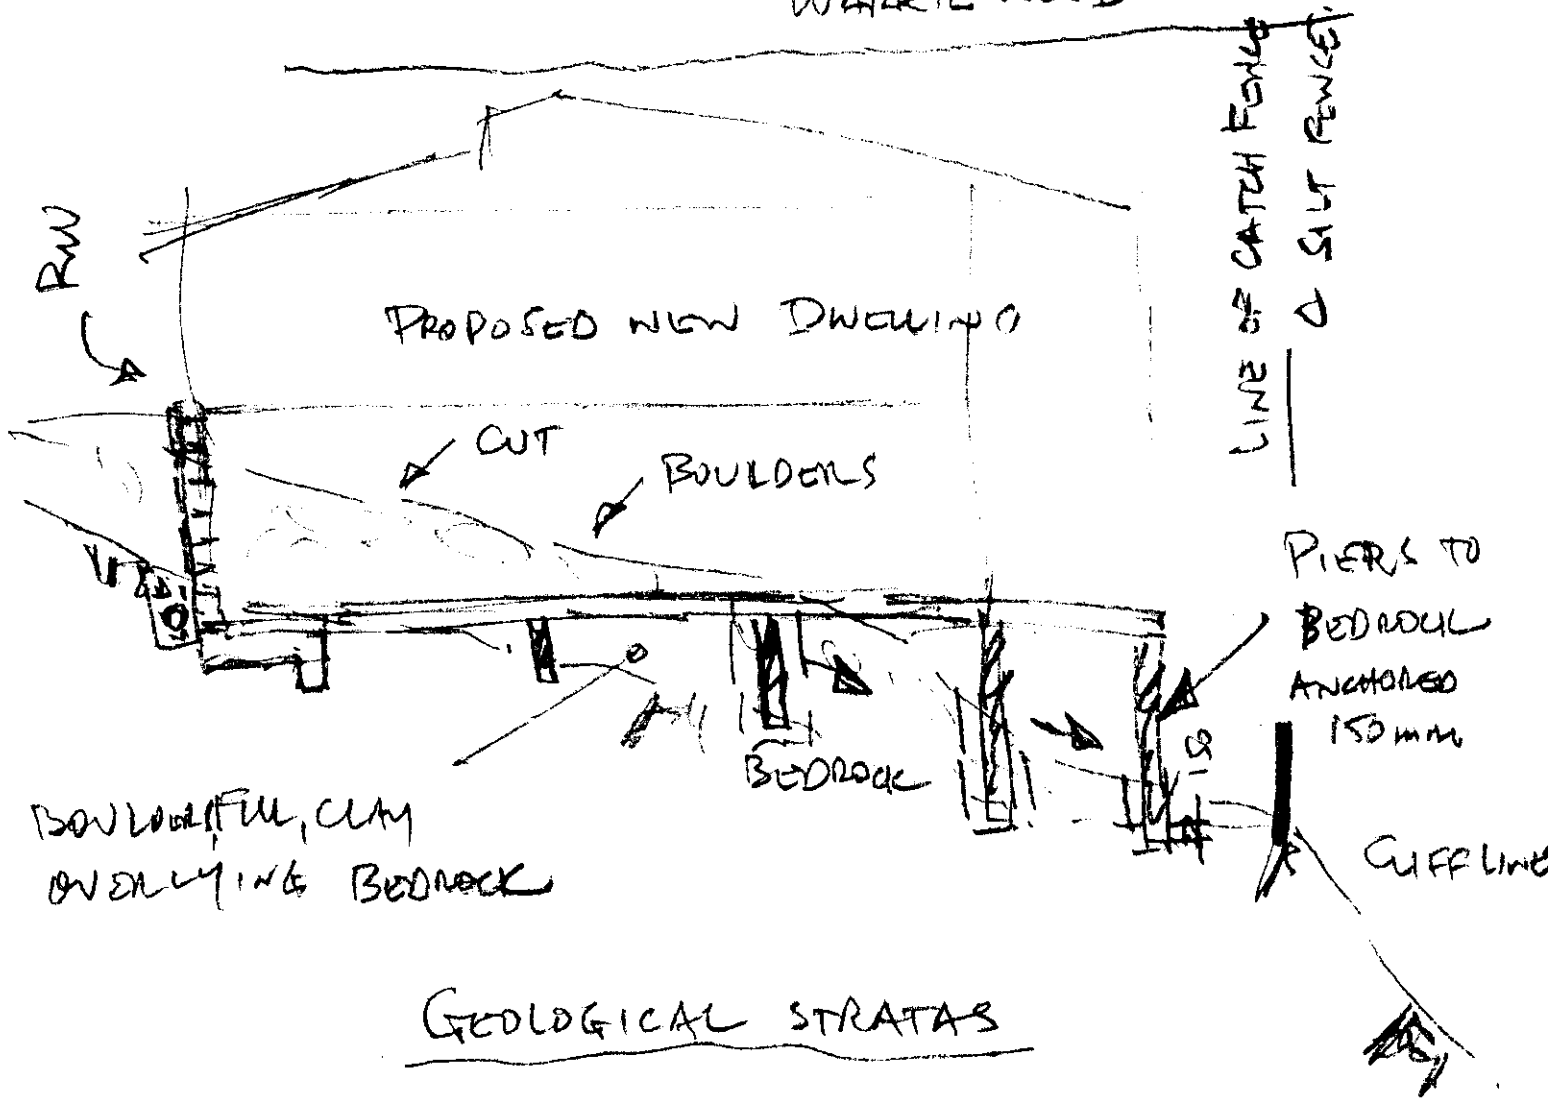 LINE OF CATCH FENCE
& SILT FENCE.
RW
PROPOSED NEW DWELLING
CUT
BOULDERS
PIERS TO
BEDROCK
ANCHORED
150mm
BEDROCK
BOULDER, FILL, CLAY
OVERLYING BEDROCK
CLIFF LINE
GEOLOGICAL STRATAS